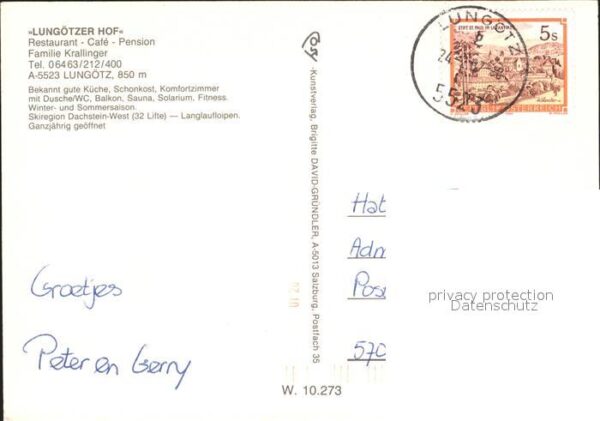 »LUNGÖTZER HOF«
Restaurant - Café - Pension
Familie Krallinger
Tel. 06463/212/400
A-5523 LUNGÖTZ, 850 m
Bekannt gute Küche, Schonkost, Komfortzimmer
mit Dusche/WC, Balkon, Sauna, Solarium, Fitness.
Winter- und Sommersaison.
Skiregion Dachstein-West (32 Lifte) — Langlaufloipen.
Ganzjährig geöffnet
Groetjes
Peter en Gerry
-Kunstverlag, Brigitte DAVID-GRÜNDLER, A-5013 Salzburg, Postfach 35
W. 10.273
LUNGÖTZ
5523
5s
STIFT ST. PAUL IM LAVANTTAL
REPUBLIK ÖSTERREICH
Hat
Adm
Pos
570
privacy protection
Datenschutz